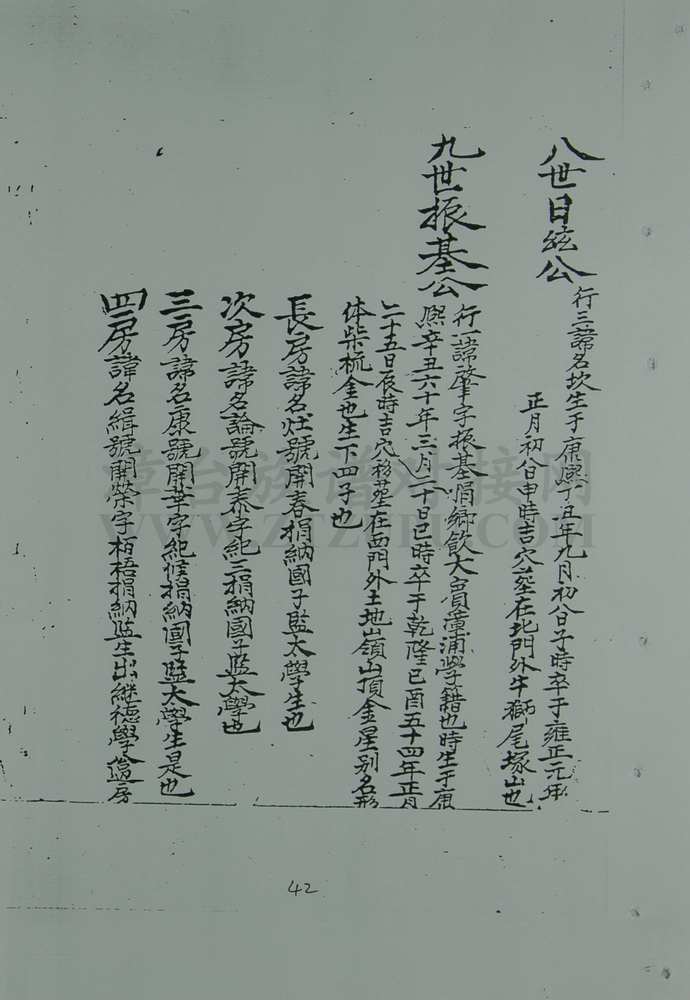 八世日絃公
行三諱名坎生于康熙丁丑年九月初八日子時卒于雍正元年
正月初八日申時吉穴塟在北門外牛獅尾塚山也
九世振基公
行一諱肇字振基捐鄉飲大賓漳浦學籍也時生于康
熙辛丑六十年三月二十日巳時卒于乾隆己酉五十四年正月
二十五日辰時吉穴移塟在西門外土地嵿山頂金星別名形
体柴梳金也生下四子也
長房諱名炷號開春捐納國子監太學生也
次房諱名論號開泰字紀三捐納國子監太學也
三房諱名康號開華字紀候捐納國子監大學生是也
四房諱名緝號開榮字栢梧捐納監生出繼德學房
章台族谱对接网
WWW.ZTZUPU.COM
42